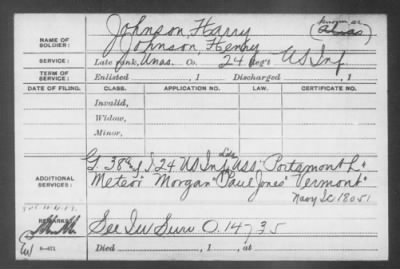 NAME OF SOLDIER: Johnson Harry (known as
Johnson, Henry alias)
SERVICE: Late rank, Unas. Co. 24 Reg't US Inf
TERM OF SERVICE: Enlisted , 1 Discharged , 1
DATE OF FILING. CLASS. APPLICATION NO. LAW. CERTIFICATE NO.
Invalid,
Widow,
Minor,
ADDITIONAL SERVICES: G 38th & I 24 US Inf Lds USS "Portsmouth"
"Meteor" "Morgan" "Paul Jones" "Vermont"
Navy SC 18051
REMARKS: See Ind Surv O. 14735
Died , 1 , at